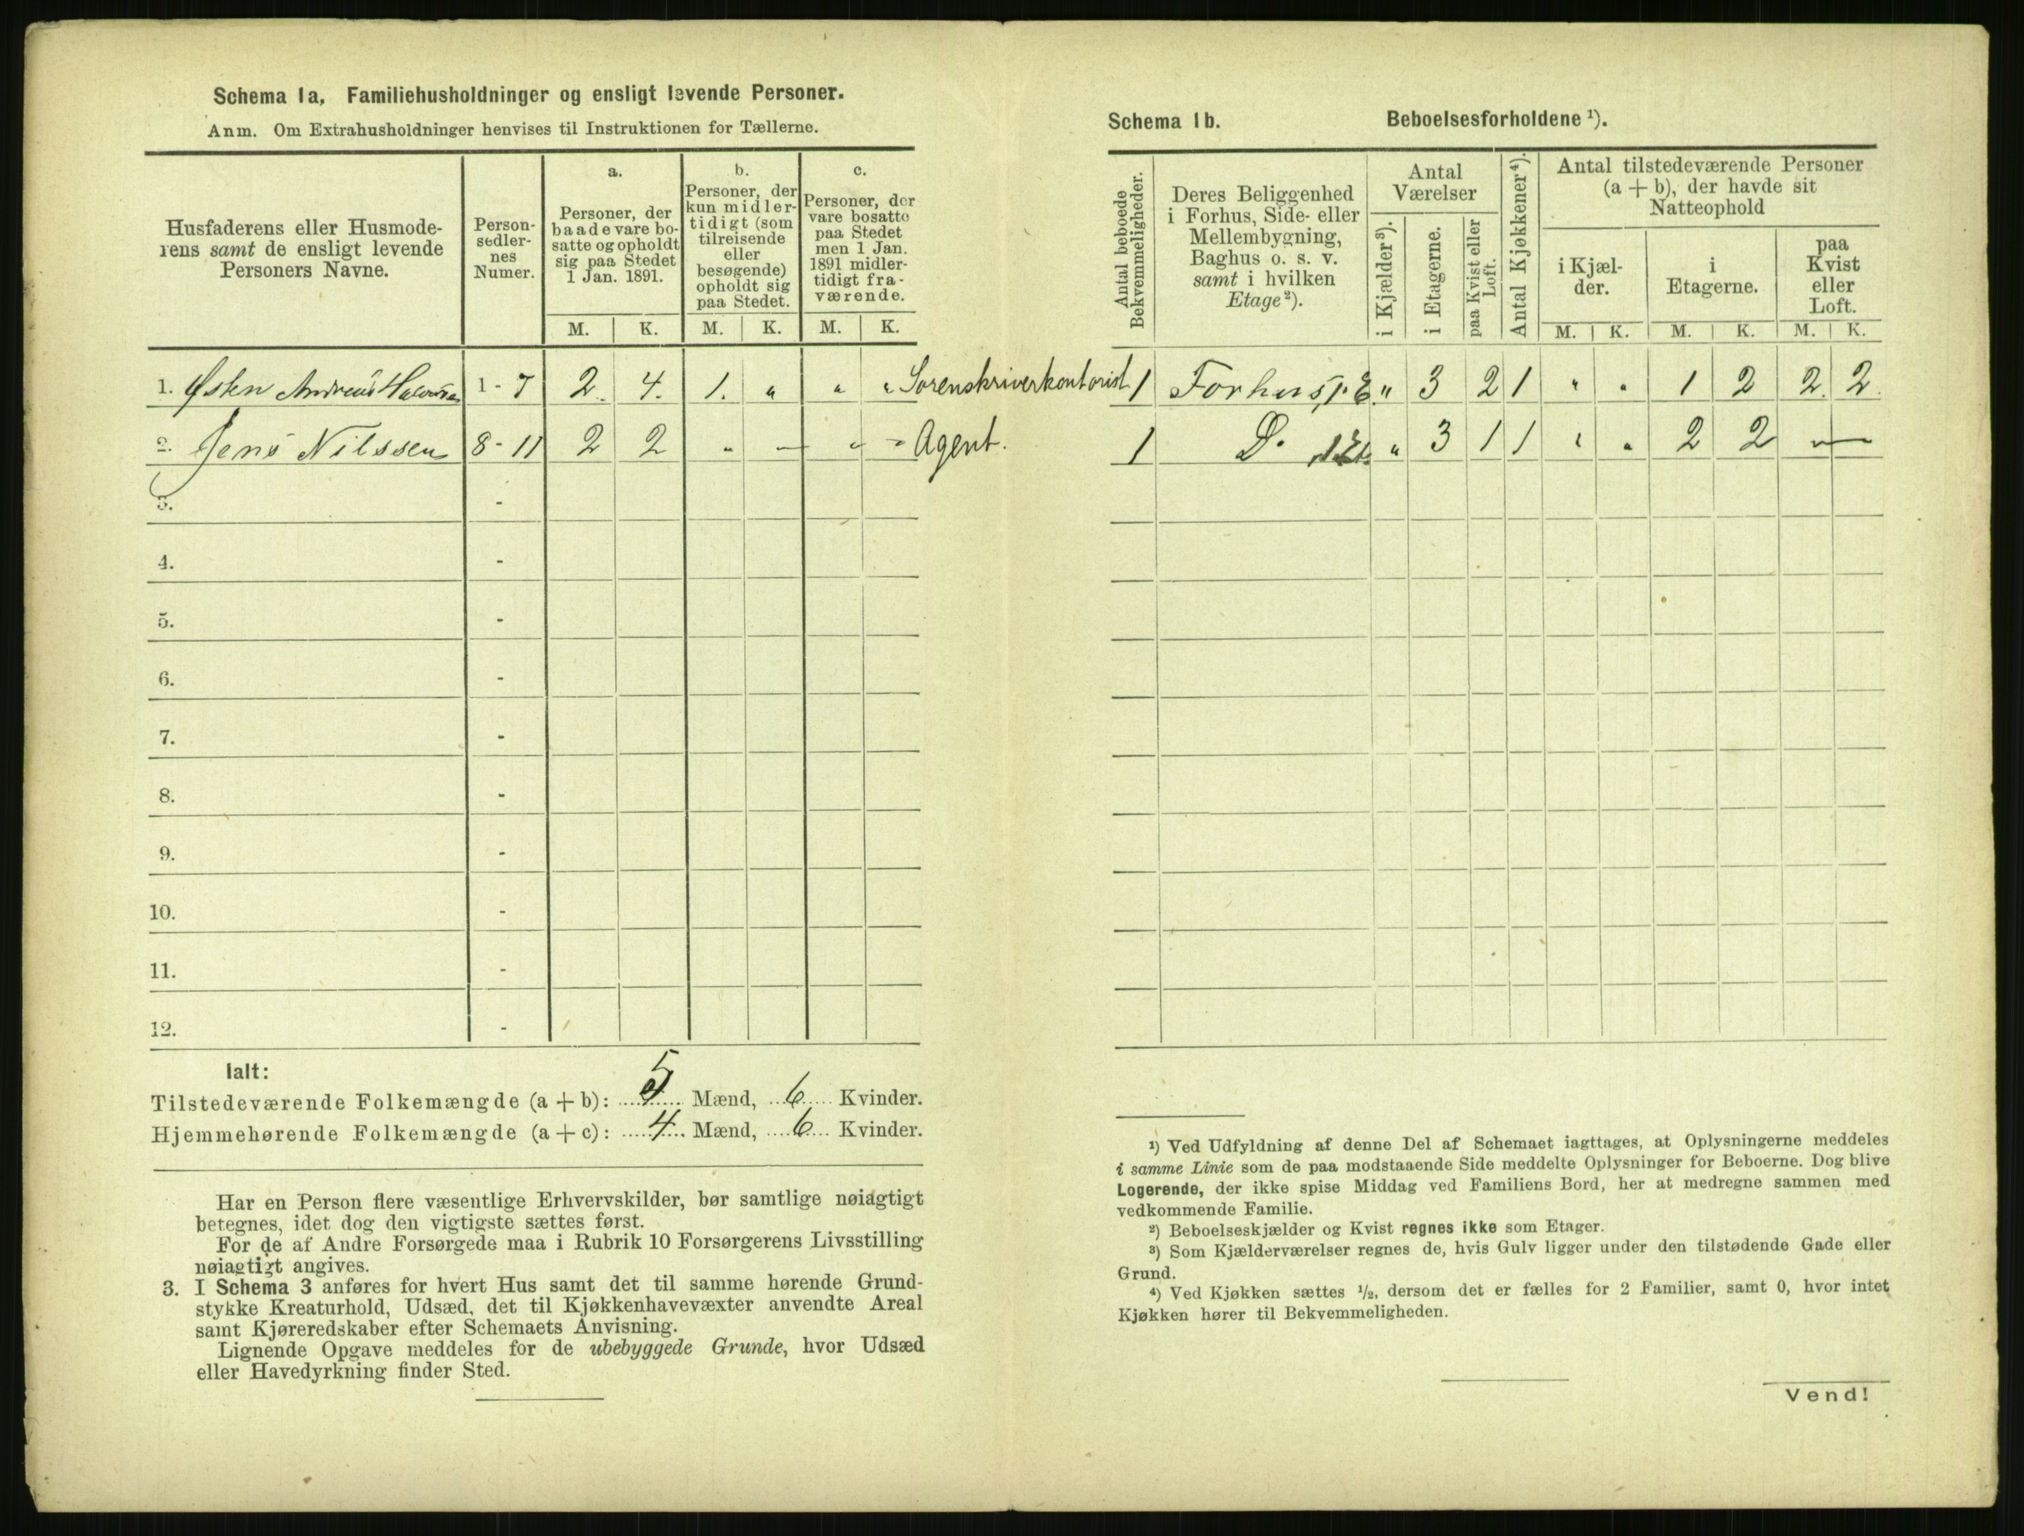 Schema 1a, Familiehusholdninger og ensligt levende Personer.
Anm. Om Extrahusholdninger henvises til Instruktionen for Tællerne.
Husfaderens eller Husmode-
rens samt de ensligt levende
Personers Navne.
Person-
sedler-
nes
Numer.
a.
Personer, der
baade vare bo-
satte og opholdt
sig paa Stedet
1 Jan. 1891.
b.
Personer, der
kun midler-
tidigt (som
tilreisende
eller
besøgende)
opholdt sig
paa Stedet.
c.
Personer, der
vare bosatte
paa Stedet
men 1 Jan.
1891 midler-
tidigt fra-
værende.
M. K. M. K. M. K.
1. Østen Andreas 1 - 7 2. 4. 1. „ „ „ Sorenskriverkontorist.
2. Jens Nilssen 8 - 11 2 2 „ — „ — Agent.
3. -
4. -
5. -
6. -
7. -
8. -
9. -
10. -
11. -
12. -
Ialt:
Tilstedeværende Folkemængde (a + b): 5 Mænd, 6 Kvinder.
Hjemmehørende Folkemængde (a + c): 4 Mænd, 6 Kvinder.
Har en Person flere væsentlige Erhvervskilder, bør samtlige nøiagtigt
betegnes, idet dog den vigtigste sættes først.
For de af Andre Forsørgede maa i Rubrik 10 Forsørgerens Livsstilling
nøiagtigt angives.
3. I Schema 3 anføres for hvert Hus samt det til samme hørende Grund-
stykke Kreaturhold, Udsæd, det til Kjøkkenhavevæxter anvendte Areal
samt Kjøreredskaber efter Schemaets Anvisning.
Lignende Opgave meddeles for de ubebyggede Grunde, hvor Udsæd
eller Havedyrkning finder Sted.
Schema 1b. Beboelsesforholdene ¹).
Antal beboede
Bekvemmeligheder.
Deres Beliggenhed
i Forhus, Side- eller
Mellembygning,
Baghus o. s. v.
samt i hvilken
Etage ²).
Antal
Værelser
i Kjælder ³).
i Etagerne.
paa Kvist eller
Loft.
Antal Kjøkkener ⁴).
Antal tilstedeværende Personer
(a + b), der havde sit
Natteophold
i Kjæl-
der.
i
Etagerne.
paa
Kvist
eller
Loft.
M. K. M. K. M. K.
1 Forhus, 1. E. „ 3 2 1 „ „ 1 2 2 2.
1 D. 1 Et. „ 3 1 1 „ „ 2 2 „ —
¹) Ved Udfyldning af denne Del af Schemaet iagttages, at Oplysningerne meddeles
i samme Linie som de paa modstaaende Side meddelte Oplysninger for Beboerne. Dog blive
Logerende, der ikke spise Middag ved Familiens Bord, her at medregne sammen med
vedkommende Familie.
²) Beboelseskjælder og Kvist regnes ikke som Etager.
³) Som Kjælderværelser regnes de, hvis Gulv ligger under den tilstødende Gade eller
Grund.
⁴) Ved Kjøkken sættes ½, dersom det er fælles for 2 Familier, samt 0, hvor intet
Kjøkken hører til Bekvemmeligheden.
Vend!